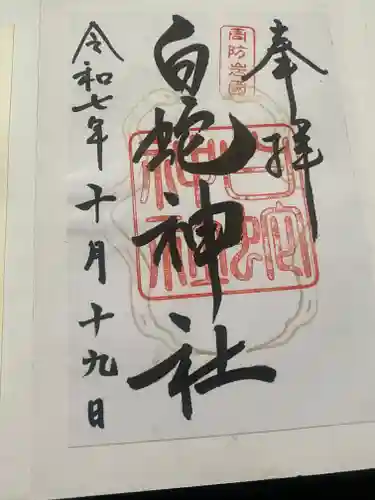 奉拝
周防岩国
白蛇神社
白蛇神社
令和七年十月十九日